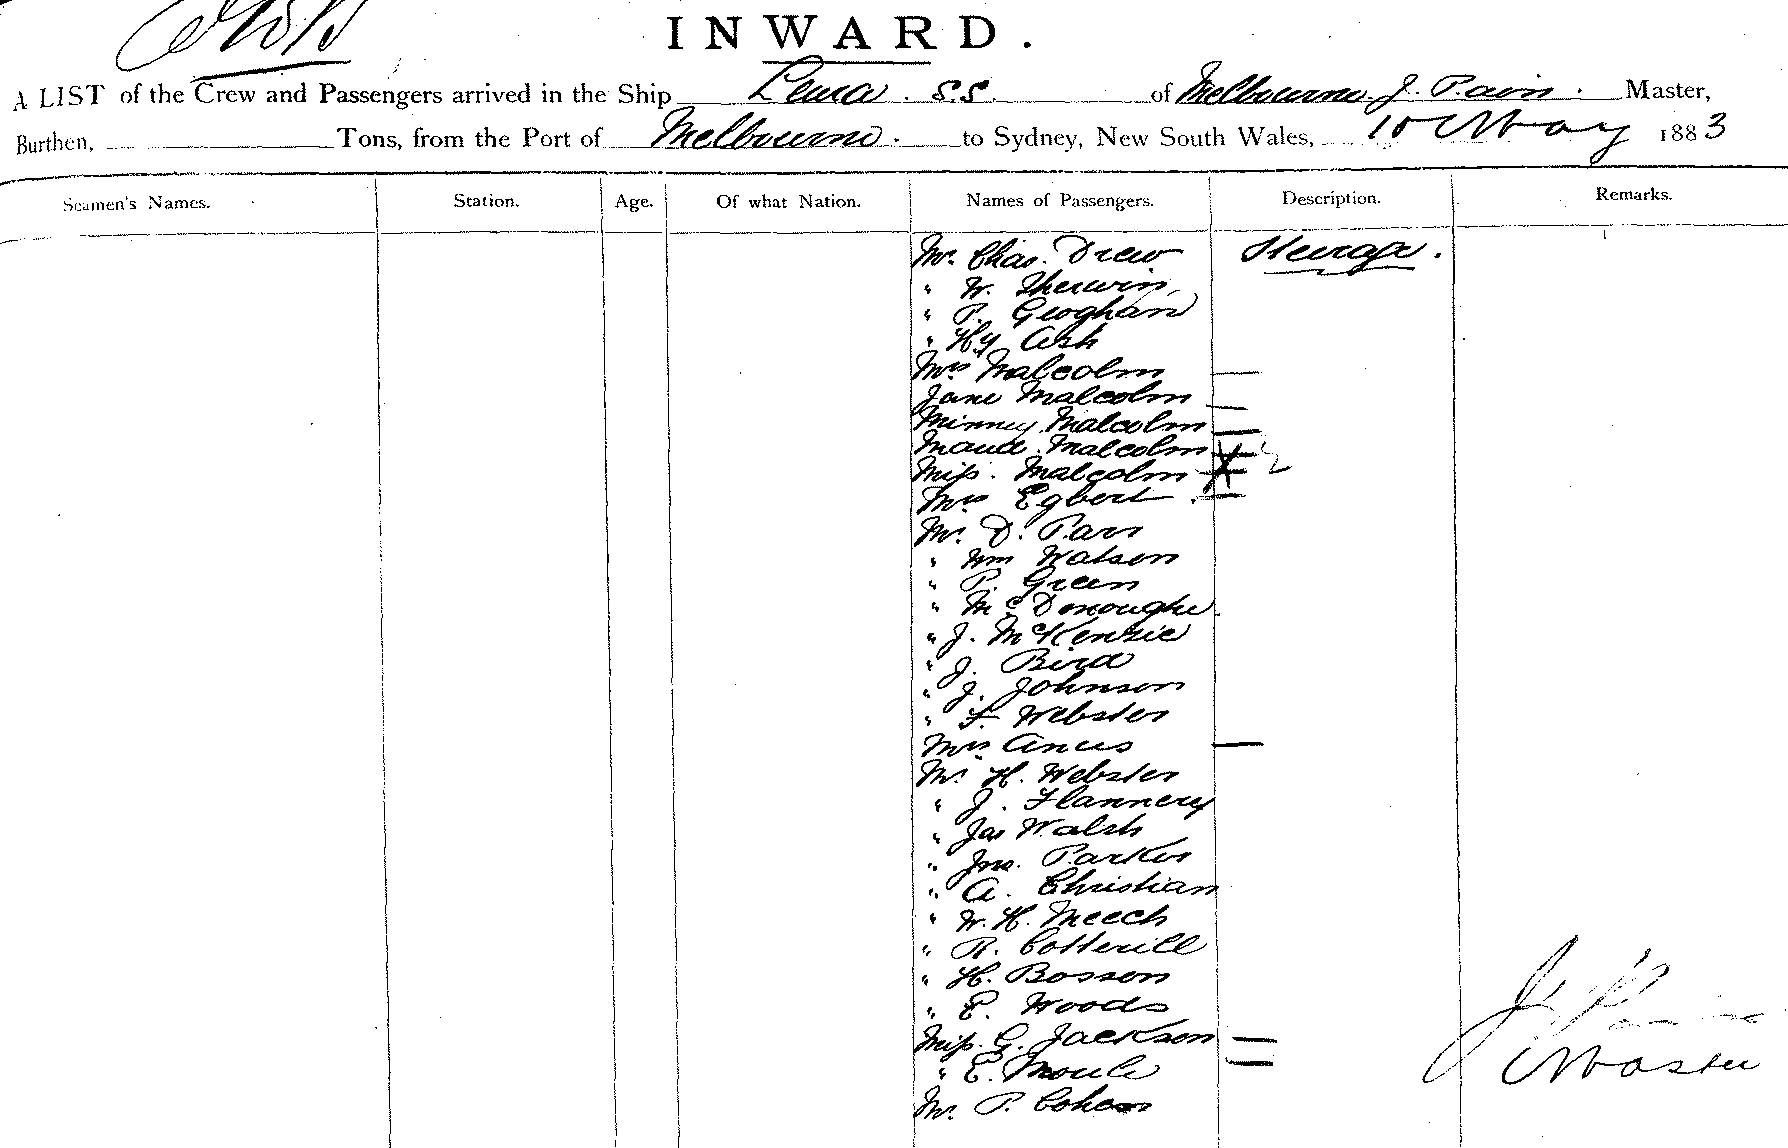 INWARD.
A LIST of the Crew and Passengers arrived in the Ship Leura S.S. of Melbourne J. Pain. Master,
Burthen, Tons, from the Port of Melbourne. to Sydney, New South Wales, 10 May 1883
Seamen's Names. Station. Age. Of what Nation. Names of Passengers. Description. Remarks.
Mr. Chas. Drew Steerage.
" W. Sherwin
" P. Geoghan
" Hy Ash
Mrs Malcolm —
Jane Malcolm —
Minney Malcolm —
Maud Malcolm — 2
Miss. Malcolm —
Mrs Egbert —
Mr. D. Parr
" Wm Watson
" P. Green
" McDonoughe
" J. McKenzie
" J. Bird
" J. Johnson
" F. Webster
Mrs —
Mr H. Webster
" J. Flannery
" Jas Walsh
" Jno. Parker
" A. Christian
" W. H. Meech
" R. Cotterill
" H. Bosson
" E. Woods
Miss. G. Jackson —
" E. Moule —
Mr. P. Cohen
J. Pain
Master